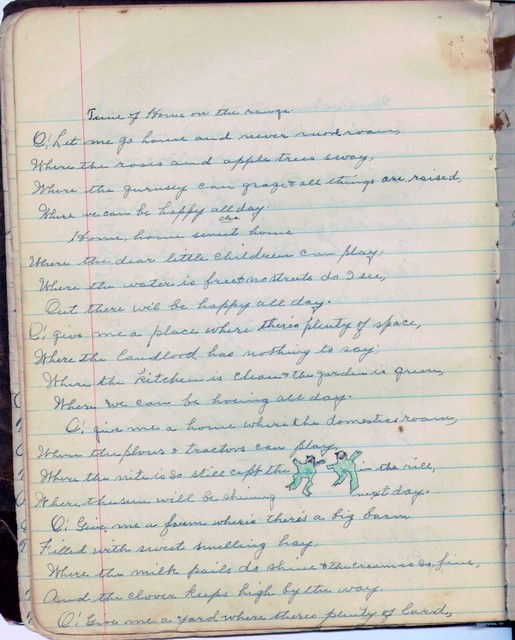 Tune of Home on the range.
O! Let me go home and never more roam,
Where the roses and apple trees sway,
Where the gurnsey can graze & all things are raised,
Where we can be happy all day.
Cho.
Home, home sweet home
Where the dear little children can play,
Where the water is free & no streets do I see,
Out there will be happy all day.
O! give me a place where theres plenty of space,
Where the landlord has nothing to say;
Where the kitchen is clean & the garden is green,
Where we can be hoeing all day.
O! give me a home where the domestics roam,
Where the plows & tractors can play
Where the nite is so still cept the in the rill,
Where the sun will be shining next day.
O! Give me a farm where's there's a big barn
Filled with sweet smelling hay,
Where the milk pails do shine & the cream is so fine,
And the clover keeps high by the way.
O! Give me a yard where theres plenty of lard,